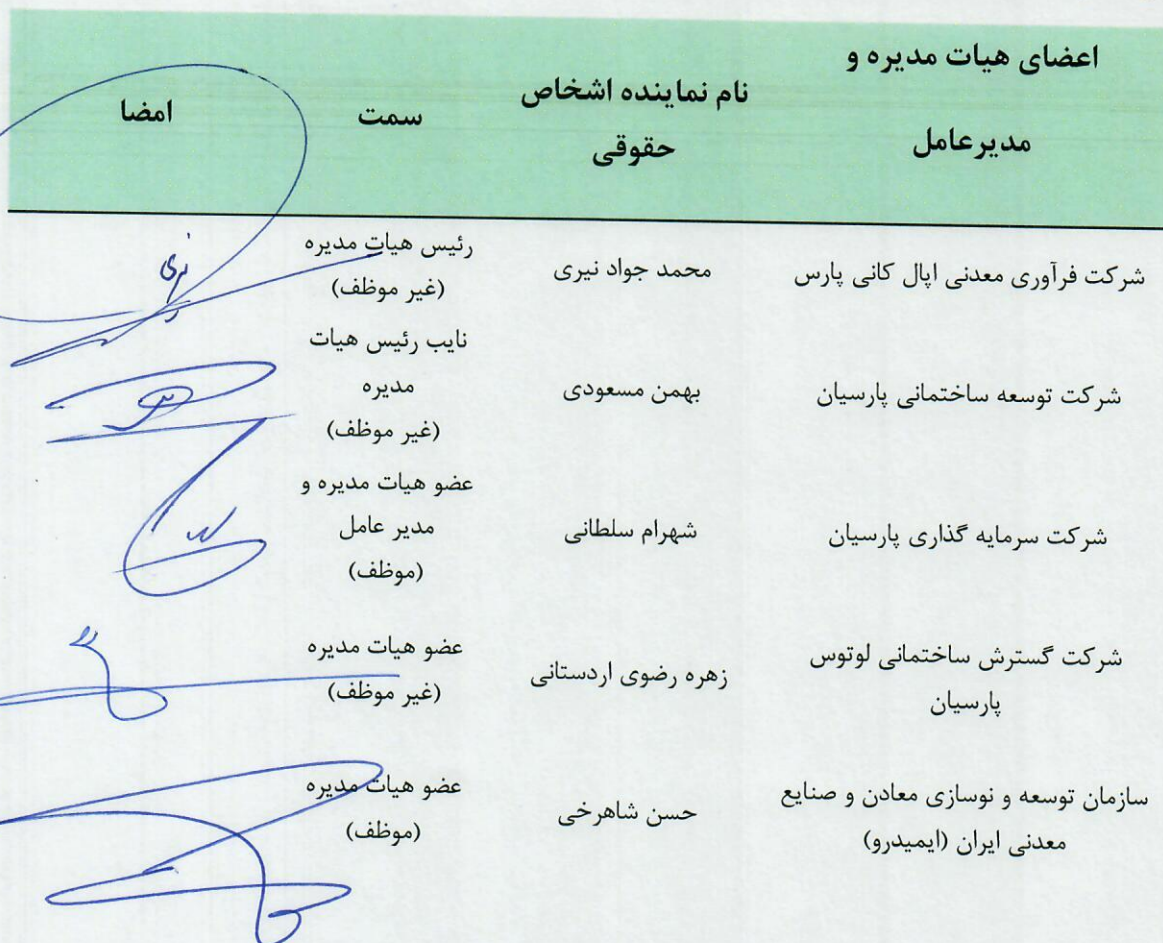 اعضای هیات مدیره و
مدیرعامل
نام نماینده اشخاص
حقوقی
سمت
امضا
شرکت فرآوری معدنی اپال کانی پارس
محمد جواد نیری
رئیس هیات مدیره
(غیر موظف)
شرکت توسعه ساختمانی پارسیان
بهمن مسعودی
نایب رئیس هیات
مدیره
(غیر موظف)
شرکت سرمایه گذاری پارسیان
شهرام سلطانی
عضو هیات مدیره و
مدیر عامل
(موظف)
شرکت گسترش ساختمانی لوتوس
پارسیان
زهره رضوی اردستانی
عضو هیات مدیره
(غیر موظف)
سازمان توسعه و نوسازی معادن و صنایع
معدنی ایران (ایمیدرو)
حسن شاهرخی
عضو هیات مدیره
(موظف)